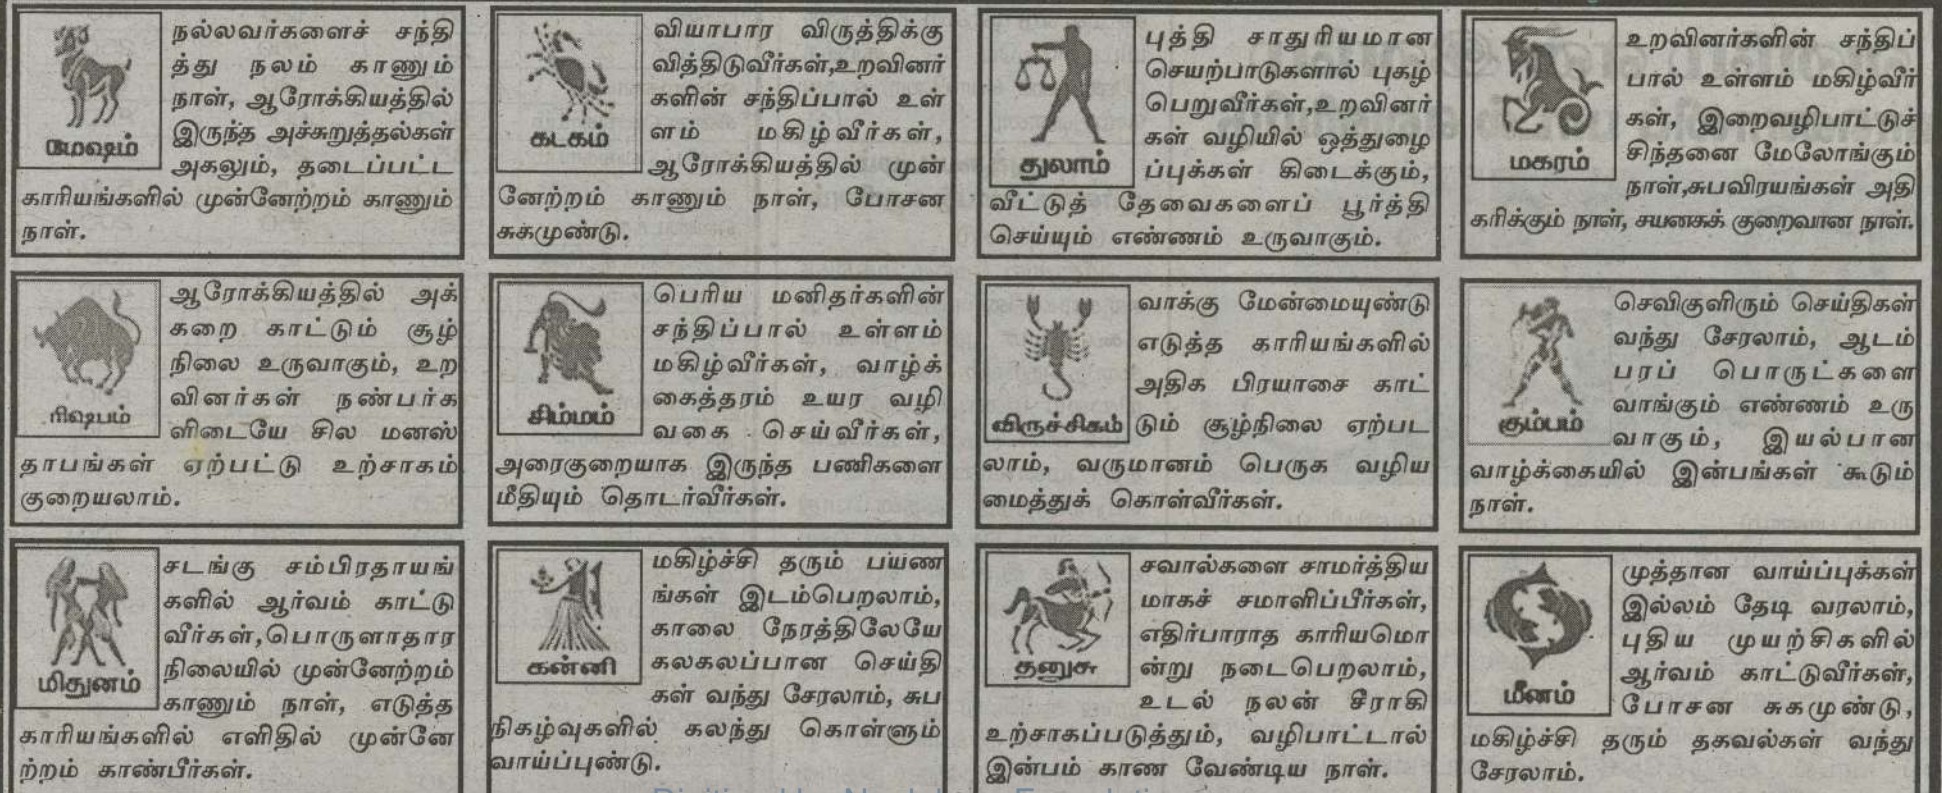 மேஷம்
நல்லவர்களைச் சந்தி
த்து நலம் காணும்
நாள், ஆரோக்கியத்தில்
இருந்த அச்சுறுத்தல்கள்
அகலும், தடைப்பட்ட
காரியங்களில் முன்னேற்றம் காணும்
நாள்.
ரிஷபம்
ஆரோக்கியத்தில் அக்
கறை காட்டும் சூழ்
நிலை உருவாகும், உற
வினர்கள் நண்பர்க
ளிடையே சில மனஸ்
தாபங்கள் ஏற்பட்டு உற்சாகம்
குறையலாம்.
மிதுனம்
சடங்கு சம்பிரதாயங்
களில் ஆர்வம் காட்டு
வீர்கள்,பொருளாதார
நிலையில் முன்னேற்றம்
காணும் நாள், எடுத்த
காரியங்களில் எளிதில் முன்னே
ற்றம் காண்பீர்கள்.
கடகம்
வியாபார விருத்திக்கு
வித்திடுவீர்கள்,உறவினர்
களின் சந்திப்பால் உள்
ளம் மகிழ்வீர்கள்,
ஆரோக்கியத்தில் முன்
னேற்றம் காணும் நாள், போசன
சுகமுண்டு.
சிம்மம்
பெரிய மனிதர்களின்
சந்திப்பால் உள்ளம்
மகிழ்வீர்கள், வாழ்க்
கைத்தரம் உயர வழி
வகை செய்வீர்கள்,
அரைகுறையாக இருந்த பணிகளை
மீதியும் தொடர்வீர்கள்.
கன்னி
மகிழ்ச்சி தரும் பயண
ங்கள் இடம்பெறலாம்,
காலை நேரத்திலேயே
கலகலப்பான செய்தி
கள் வந்து சேரலாம், சுப
நிகழ்வுகளில் கலந்து கொள்ளும்
வாய்ப்புண்டு.
துலாம்
புத்தி சாதுரியமான
செயற்பாடுகளால் புகழ்
பெறுவீர்கள்,உறவினர்
கள் வழியில் ஒத்துழை
ப்புக்கள் கிடைக்கும்,
வீட்டுத் தேவைகளைப் பூர்த்தி
செய்யும் எண்ணம் உருவாகும்.
விருச்சிகம்
வாக்கு மேன்மையுண்டு
எடுத்த காரியங்களில்
அதிக பிரயாசை காட்
டும் சூழ்நிலை ஏற்பட
லாம், வருமானம் பெருக வழிய
மைத்துக் கொள்வீர்கள்.
தனுசு
சவால்களை சாமர்த்திய
மாகச் சமாளிப்பீர்கள்,
எதிர்பாராத காரியமொ
ன்று நடைபெறலாம்,
உடல் நலன் சீராகி
உற்சாகப்படுத்தும், வழிபாட்டால்
இன்பம் காண வேண்டிய நாள்.
மகரம்
உறவினர்களின் சந்திப்
பால் உள்ளம் மகிழ்வீர்
கள், இறைவழிபாட்டுச்
சிந்தனை மேலோங்கும்
நாள்,சுபவிரயங்கள் அதி
கரிக்கும் நாள், சயனசுக் குறைவான நாள்.
கும்பம்
செவிகுளிரும் செய்திகள்
வந்து சேரலாம், ஆடம்
பரப் பொருட்களை
வாங்கும் எண்ணம் உரு
வாகும், இயல்பான
வாழ்க்கையில் இன்பங்கள் கூடும்
நாள்.
மீனம்
முத்தான வாய்ப்புக்கள்
இல்லம் தேடி வரலாம்,
புதிய முயற்சிகளில்
ஆர்வம் காட்டுவீர்கள்,
போசன சுகமுண்டு,
மகிழ்ச்சி தரும் தகவல்கள் வந்து
சேரலாம்.